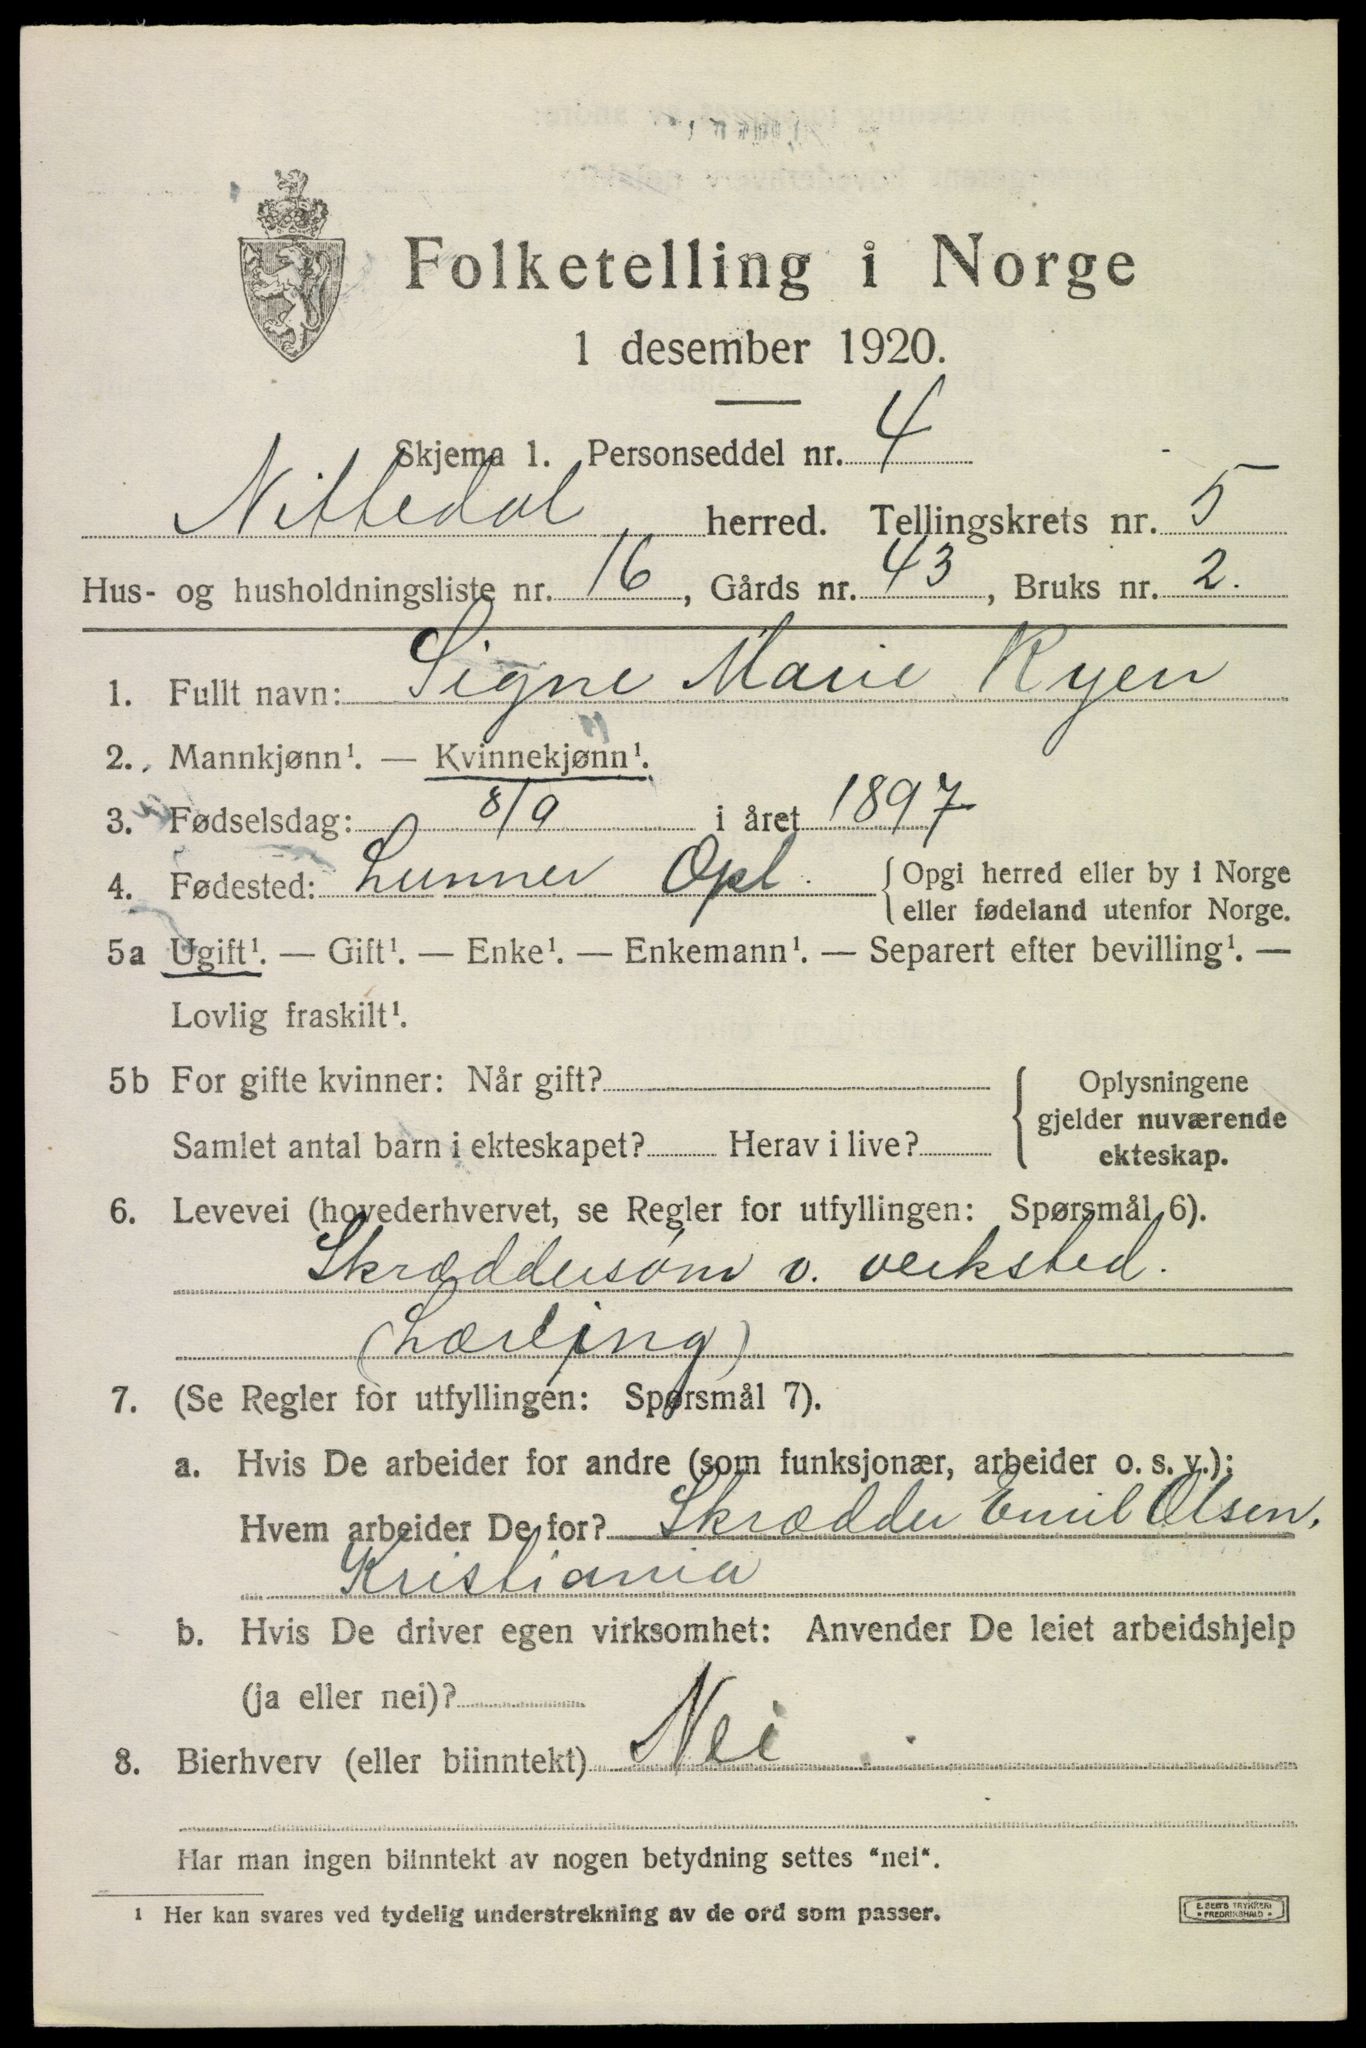 Folketelling i Norge
1 desember 1920.
Skjema 1. Personseddel nr. 4
Nittedal herred. Tellingskrets nr. 5
Hus- og husholdningsliste nr. 16, Gårds nr. 43, Bruks nr. 2.
1. Fullt navn: Signe Marie Ryen
2. Mannkjønn¹. — Kvinnekjønn¹.
3. Fødselsdag: 8/9 i året 1897
4. Fødested: Lunner Opl. { Opgi herred eller by i Norge
eller fødeland utenfor Norge.
5a Ugift¹. — Gift¹. — Enke¹. — Enkemann¹. — Separert efter bevilling¹. —
Lovlig fraskilt¹.
5b For gifte kvinner: Når gift? { Oplysningene
gjelder nuværende
Samlet antal barn i ekteskapet? Herav i live? ekteskap.
6. Levevei (hovederhvervet, se Regler for utfyllingen: Spørsmål 6).
Skræddersøm v. verksted.
(Lærling)
7. (Se Regler for utfyllingen: Spørsmål 7).
a. Hvis De arbeider for andre (som funksjonær, arbeider o. s. v.):
Hvem arbeider De for? Skrædder Emil Olsen,
Kristiania
b. Hvis De driver egen virksomhet: Anvender De leiet arbeidshjelp
(ja eller nei)?
8. Bierhverv (eller biinntekt) Nei
Har man ingen biinntekt av nogen betydning settes "nei".
¹ Her kan svares ved tydelig understrekning av de ord som passer.
E. SEM'S TRYKKERI
• FREDRIKSHALD •